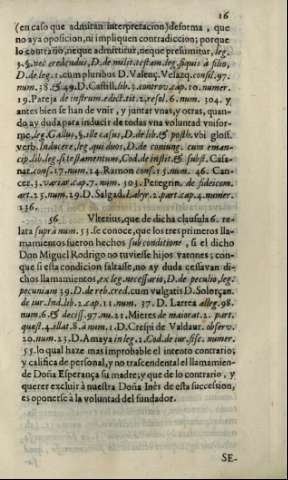 16
(en caso que admitan interpretacion) desforma, que
no aya oposicion, ni impliquen contradiccion; porque
lo contrario, neque admittitur, neque præsumitur, leg.
3. §. nec credendus, D. de milit. testam. leg. si quis à filio,
D. de leg. 1. cum pluribus D. Valenç. Velazq. consil. 97.
num. 38. & 49. D. Castill. lib. 3. controv. cap. 10. numer.
19. Pareja de instrum. edict. tit. 2. resol. 6. num. 304. y
antes bien se han de vnir, y juntar vnas, y otras, quan-
do ay duda para inducir de todas vna voluntad vnifor-
me, leg. Gallus, §. ille casus, D. de lib. & posth. vbi gloss.
verb. Inducere, leg. qui duos, D. de coniung. cum eman-
cip. lib. leg. si testamentum, Cod. de instit. & subst. Casa-
nat. cons. 17. num. 14. Ramon cons. 15. num. 46. Can-
cer. 3. variar. cap. 7. num. 103. Peregrin. de fideicom.
art. 25. num. 29. D. Salgad. Labyr. 2. part. cap. 4. numer.
136.
56 Vlterius, que de dicha clausula 6. re-
lata suprà num. 53. se conoce, que los tres primeros lla-
mamientos fueron hechos sub conditione, si el dicho
Don Miguel Rodrigo no tuviesse hijos varones; con-
que si esta condicion faltasse, no ay duda cessavan di-
chos llamamientos, ex leg. necessario, D. de peculio, leg.
pecuniam 39. D. de reb. cred. cum vulgatis D. Solorçan.
de iur. Ind. lib. 2. cap. 11. num. 37. D. Larrea alleg. 98.
num. 6. & deciss. 97. nu. 21. Mieres de maiorat. 2. part.
quæst. 4. illat. 8. à num. 11. D. Crespi de Valdaur. observ.
20. num. 23. D. Amaya in leg. 2. Cod. de iur. fisc. numer.
55. lo qual haze mas improbable el intento contrario,
y califica de personal, y no trascendental el llamamien-
to de Doña Esperança su madre; y que de lo contrario, y
querer excluir à nuestra Doña Inès de esta succession,
es oponerse à la voluntad del fundador.
SE-